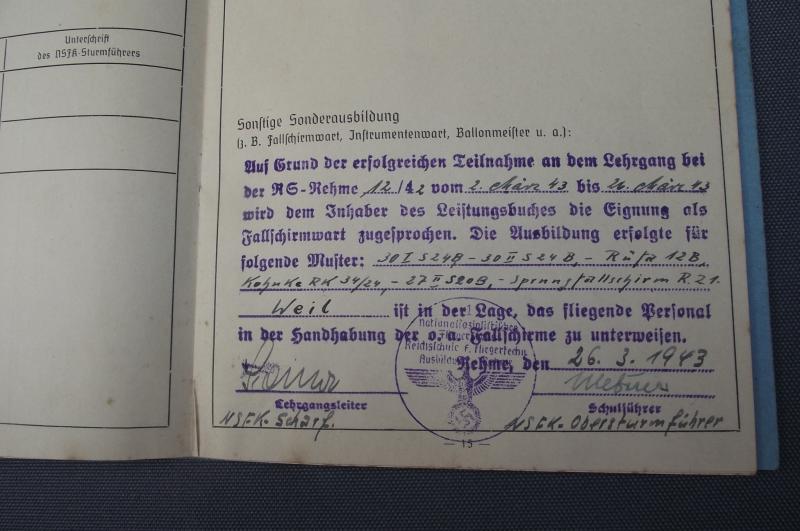 Unterschrift
des NSFK-Sturmführers
Sonstige Sonderausbildung
(z. B. Fallschirmwart, Instrumentenwart, Ballonmeister u. a.):
Auf Grund der erfolgreichen Teilnahme an dem Lehrgang bei
der RS-Rehme 12/42 vom 2. März 43 bis 26. März 43
wird dem Inhaber des Leistungsbuches die Eignung als
Fallschirmwart zugesprochen. Die Ausbildung erfolgte für
folgende Muster: 30 I S 24 B - 30 II S 24 B, - Rüfa 12 B,
Kohnke RK 34/24, - 27 II S 20 B, - Sprungfallschirm R.Z 1.
Weil ist in der Lage, das fliegende Personal
in der Handhabung der o.a. Fallschirme zu unterweisen.
Nationalsozialistisches
Reichsschule f. Fliegertechn.
Rehme, den 26. 3. 1943
Lehrgangsleiter
Schulführer
NSFK-Scharf.
NSFK-Obersturmführer
— 15 —